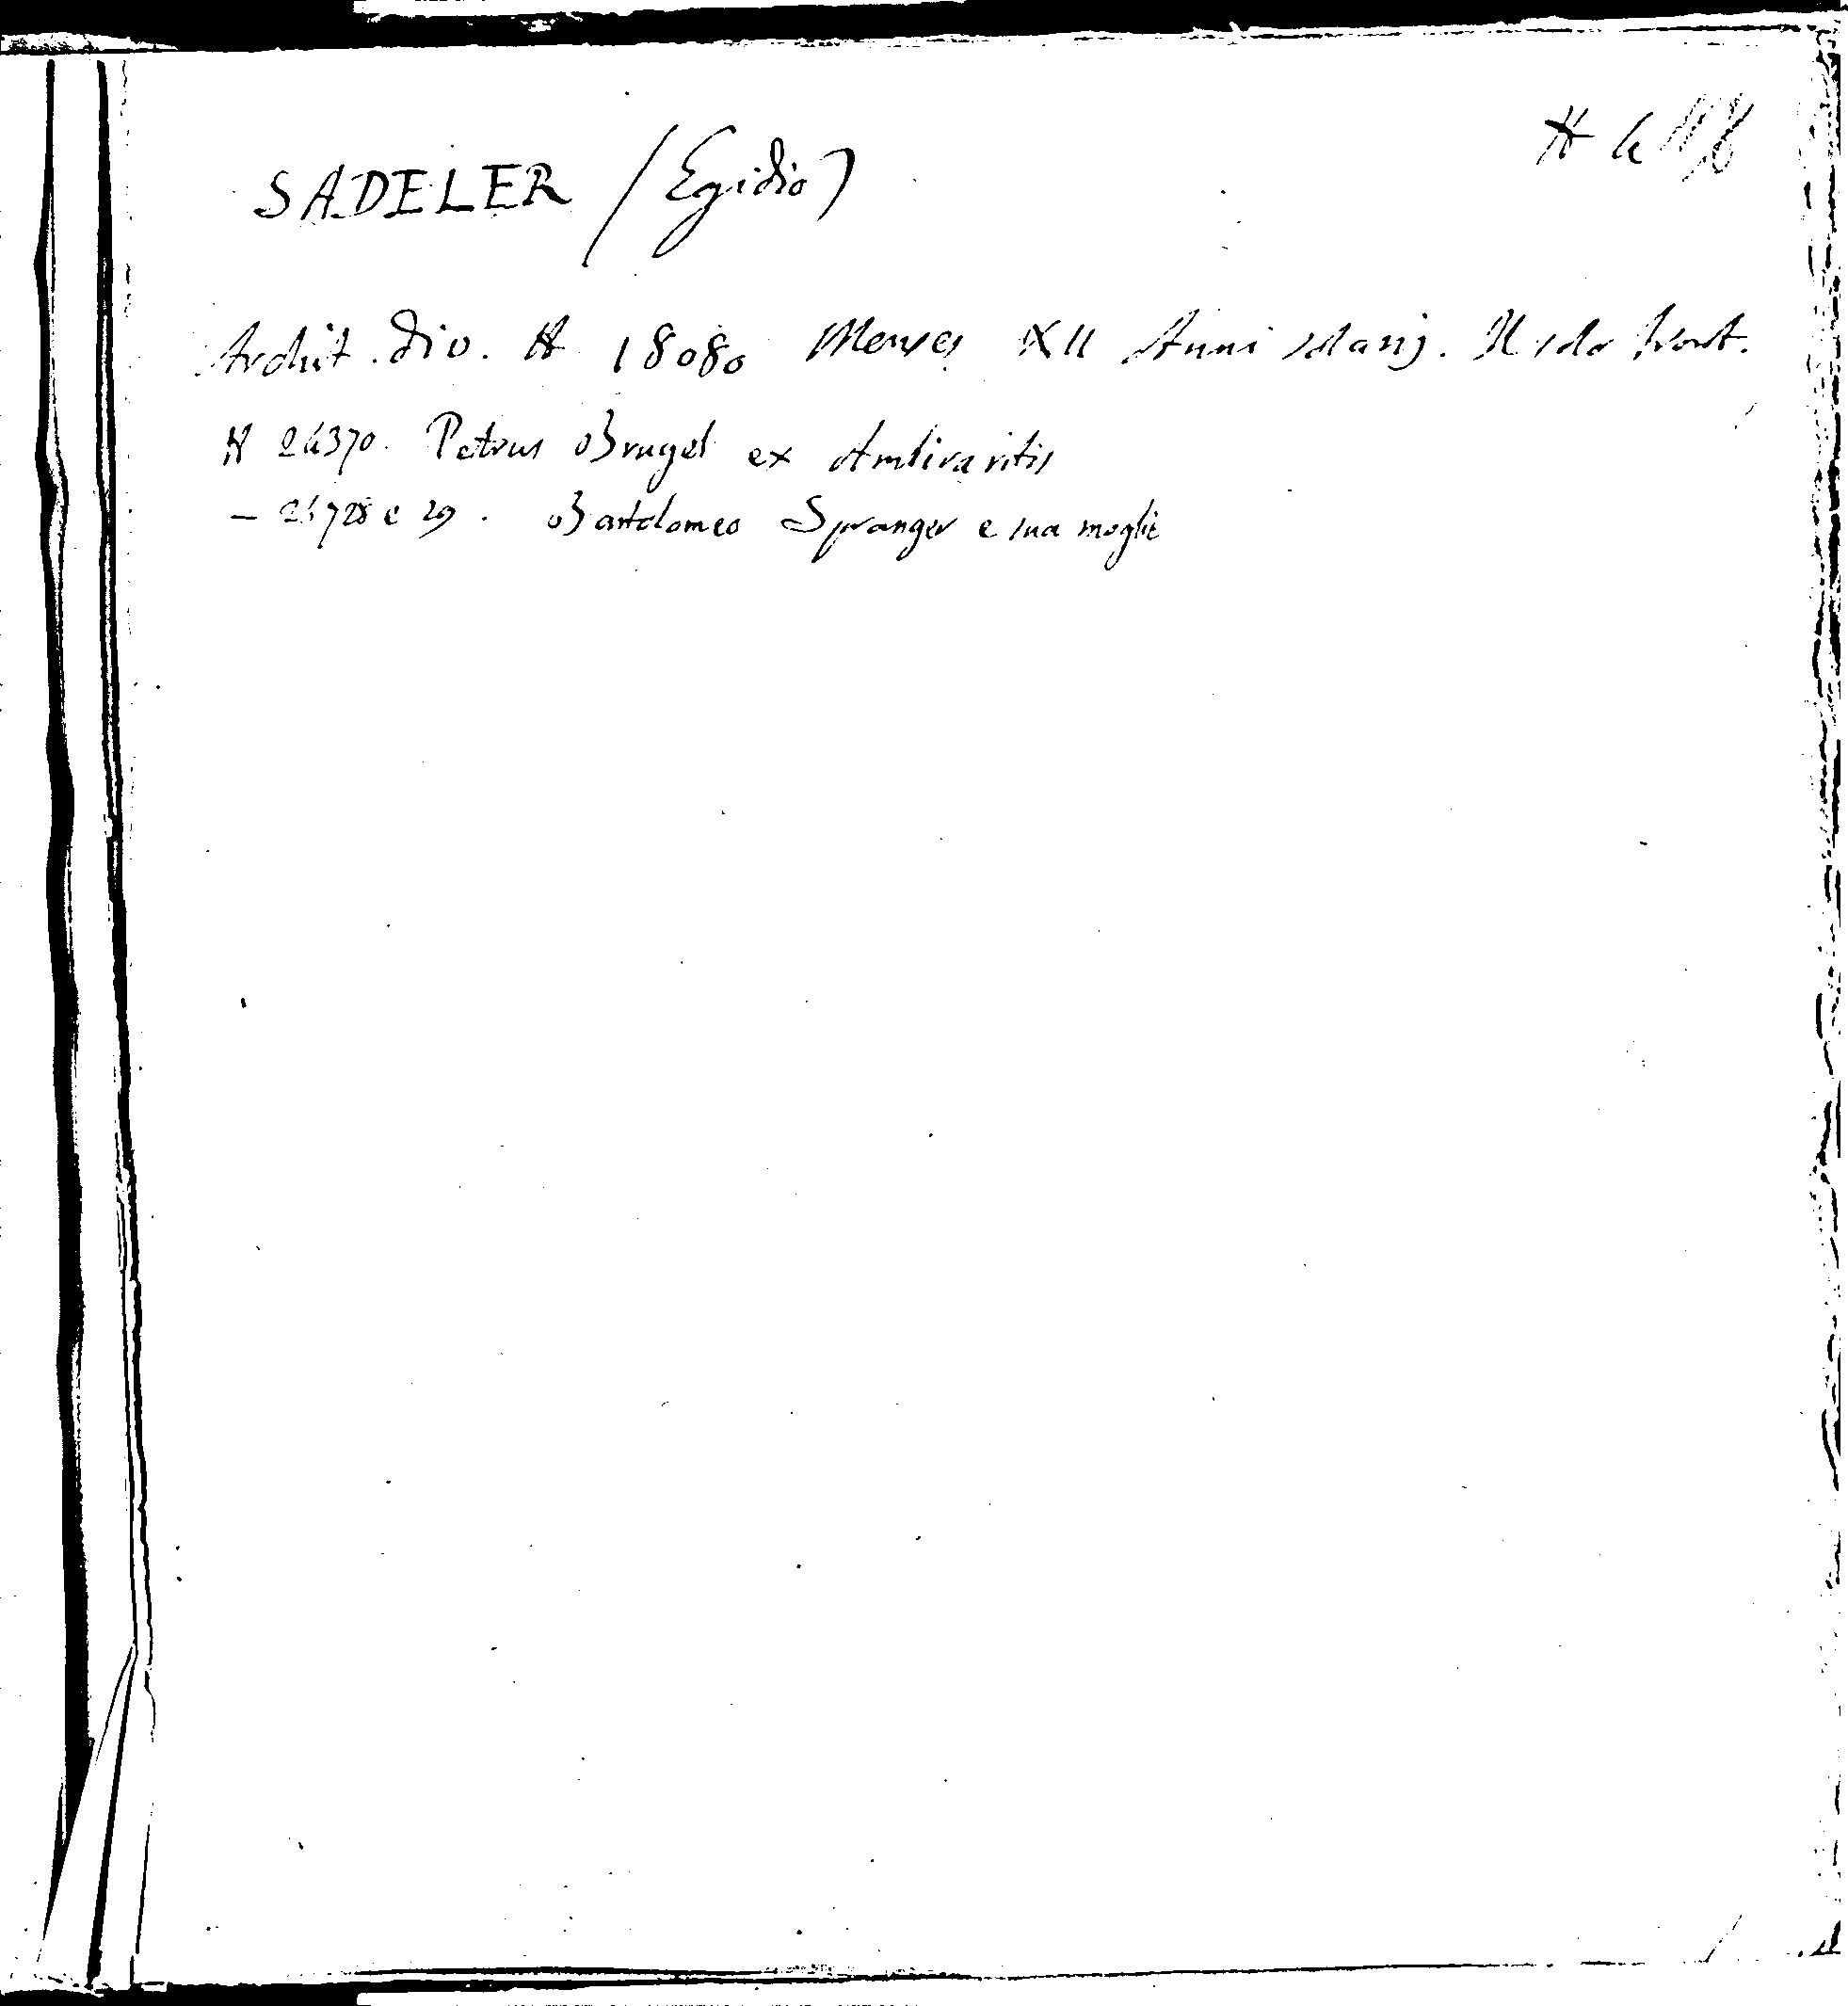 SADELER (Egidio)
Archit. div. H 18080 Menses XII Anni solarij. Il solo front.
H 24370. Petrus Brugel ex Ambivaritis
— 24728 e 29. Bartolomeo Spranger e sua moglie